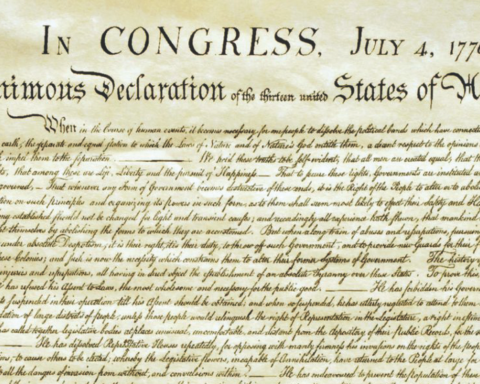 IN CONGRESS, JULY 4, 1776
nimous Declaration of the thirteen united States of A
When in the Course of human events, it becomes necessary for one people to dissolve the political bands which have connec
earth, the separate and equal station to which the Laws of Nature and of Nature's God entitle them, a decent respect to the opinions
impel them to the separation. — We hold these truths to be self-evident, that all men are created equal, that th
that among these are Life, Liberty and the pursuit of Happiness. — That to secure these rights, Governments are instituted
governed, — That whenever any Form of Government becomes destructive of these ends, it is the Right of the People to alter or to abol
tion on such principles and organizing its powers in such form, as to them shall seem most likely to effect their Safety and Ha
long established should not be changed for light and transient causes; and accordingly all experience hath shewn, that mankind
themselves by abolishing the forms to which they are accustomed. But when a long train of abuses and usurpations, pursuin
under absolute Despotism, it is their right, it is their duty, to throw off such Government, and to provide new Guards for their
Colonies; and such is now the necessity which constrains them to alter their former Systems of Government. The history
injuries and usurpations, all having in direct object the establishment of an absolute Tyranny over these States. To prove this,
He has refused his Assent to Laws, the most wholesome and necessary for the public good. — He has forbidden his Govern
suspended in their operation till his Assent should be obtained; and when so suspended, he has utterly neglected to attend to them
of large districts of people, unless those people would relinquish the right of Representation in the Legislature, a right in
has called together legislative bodies at places unusual, uncomfortable, and distant from the depository of their public Records, for the
He has dissolved Representative Houses repeatedly, for opposing with manly firmness his invasions on the rights of the peop
to cause others to be elected; whereby the Legislative powers, incapable of Annihilation, have returned to the People at large for
all the dangers of invasion from without, and convulsions within. — He has endeavoured to prevent the population of thes